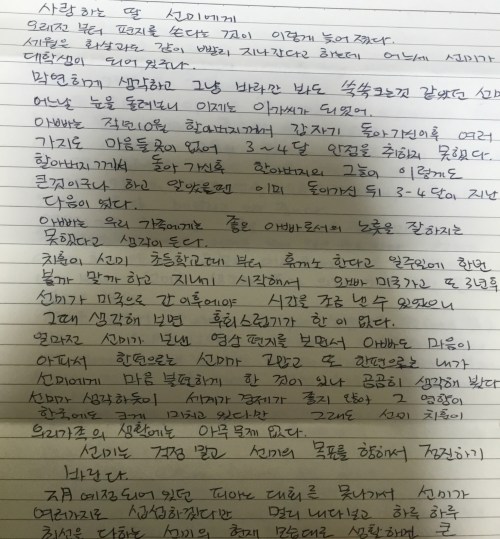 사랑하는 딸 선미에게
오래전 부터 편지를 쓴다는 것이 이렇게 늦어 졌다.
세월은 화살과도 같이 빨리 지나간다고 하는데 어느새 선미가
대학생이 되어 있구나.
막연하게 생각하고 그냥 바라만 봐도 쑥쑥크는것 같았던 선미
어느날 눈을 돌려보니 이제는 아가씨가 되었어.
아빠는 작년10월 할아버지께서 갑자기 돌아가신이후 여러
가지로 마음둘곳이 없어 3~4달 안정을 취하지 못했다.
할아버지께서 돌아 가신후 할아버지의 그늘이 이렇게도
큰것이구나 하고 알았을땐 이미 돌아가신 뒤 3-4달이 지난
다음이 었다.
아빠는 우리 가족에게는 좋은 아빠로서의 노릇을 잘하지는
못했다고 생각이 든다.
치훈이 선미 초등학교때 부터 한다고 일주일에 한번
볼까 말까 하고 지내기 시작해서 미국가고 또 3년후
선미가 미국으로 간 이후에야 시간을 조금 낼수 있었으니
그때 생각해 보면 후회스럽기가 한 이 없다.
얼마전 선미가 보낸 영상 편지를 보면서 아빠도 마음이
아파서 한편으로는 선미가 고맙고 또 한편으로는 내가
선미에게 마음 불편하게 한 것이 있나 곰곰히 생각해 봤다
선미가 생각하듯이 세계가 경제가 좋지 않아 그 영향이
한국에도 크게 미치고 있다만 그래도 선미 치훈이
우리가족의 생활에는 아무 문제 없다.
선미는 걱정 말고 선미의 목표를 향해서 정진하기
바란다.
예정되어 있던 피아노 대회를 못나가서 선미가
여러가지로 섭섭하겠다만 멀리 내다보고 하루 하루
최선을 다하는 선미의 현재 모습대로 생활하면 큰